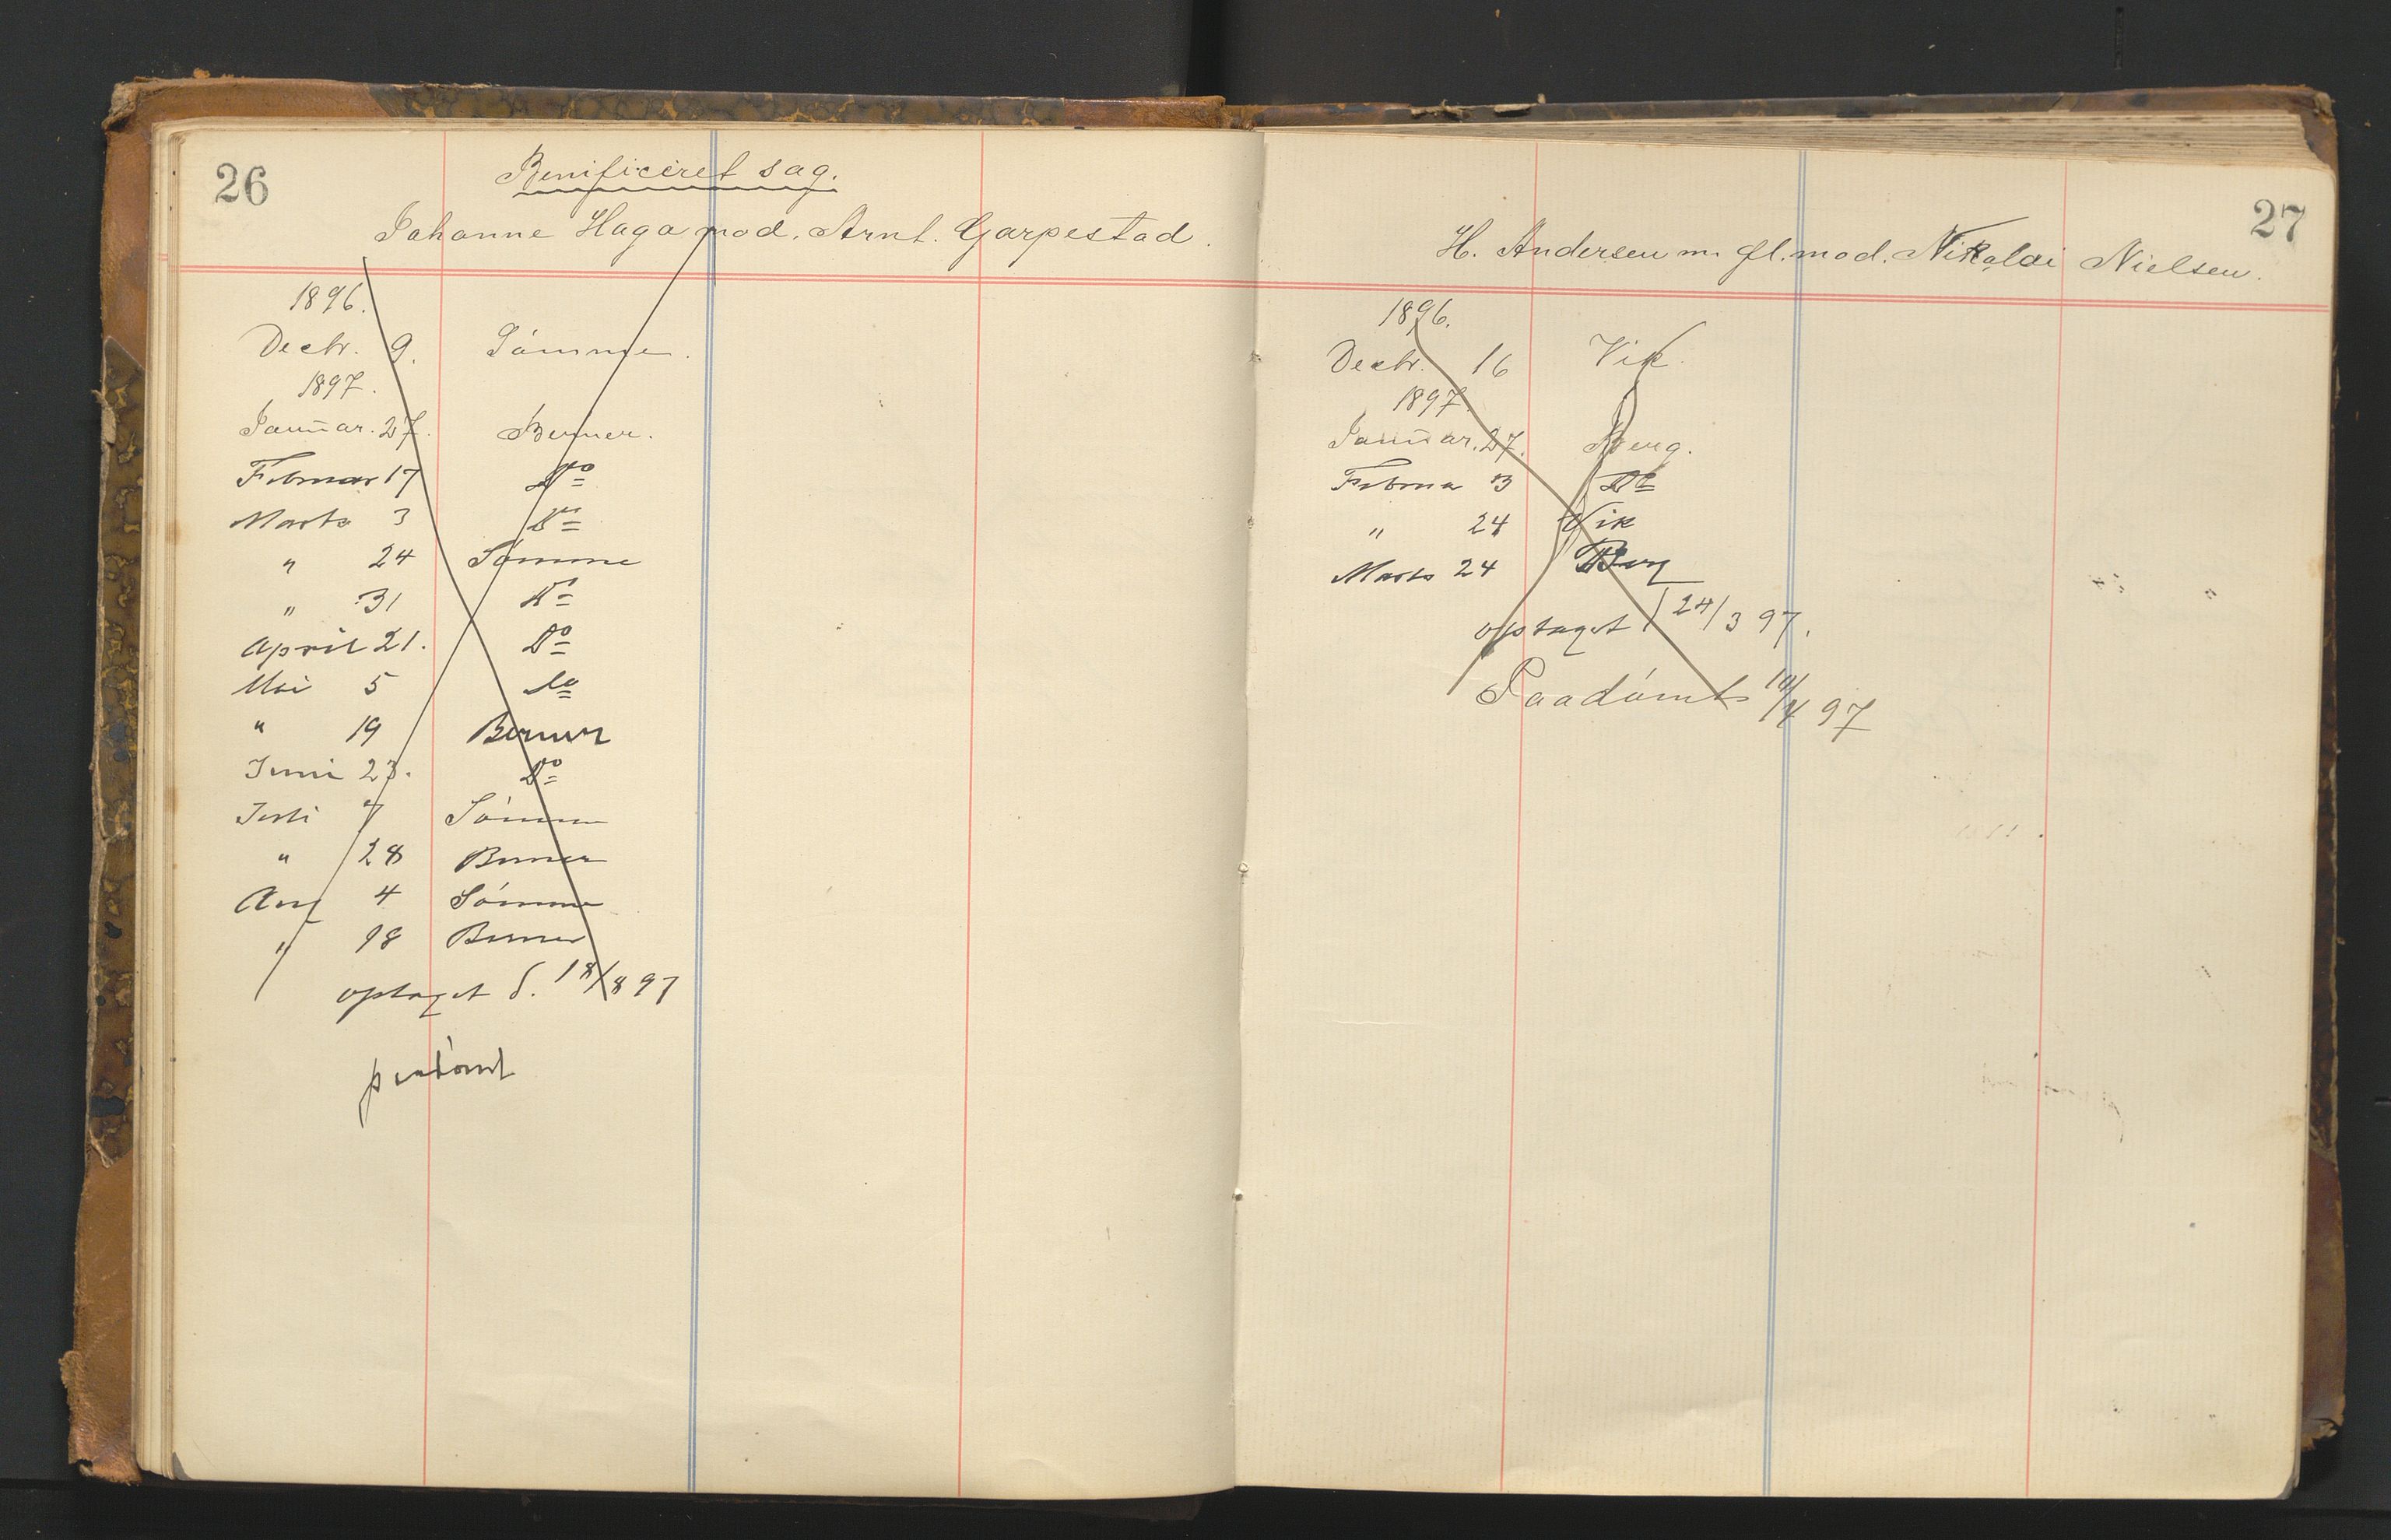 26
Benificeret sag.
Johanne Haga mod. Arnt. Garpestad.
1896.
Decbr. 9. Sømme.
1897.
Januar. 27. Berner.
Februar 17 Do
Marts 3 Do
" 24 Sømme
" 31 Do
April 21. Do
Mai 5 Do
" 19 Berner
Juni 23. Do
Juli 7 Sømme
" 28 Berner
Aug 4 Sømme
" 18 Berner
optaget d. 18/8 97
paadømt
27
H. Andersen m. fl. mod. Nikolai Nielsen.
1896.
Decbr. 16 Vik.
1897.
Januar. 27. Berg.
Februa 3 Do
" 24 Vik
Marts 24 Berg
optaget 24/3 97.
Paadømt 10/4 97